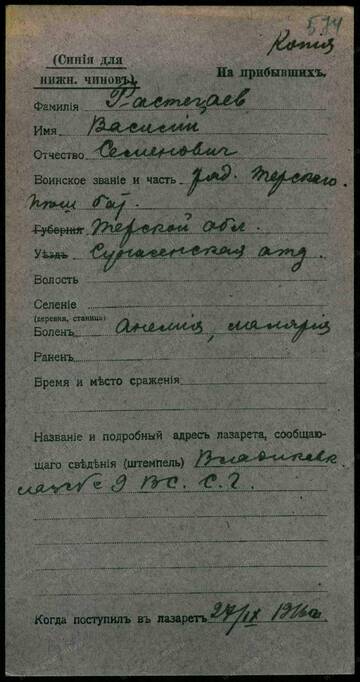 574
Копія
(Синія для
нижн. чиновъ).
На прибывшихъ.
Фамилія Растегаев
Имя Василій
Отчество Семенович
Воинское званіе и часть ряд. Терскаго
пѣш бат.
Губернія Терской обл.
Уѣздъ Сунженская отд.
Волость
Селеніе
(деревня, станица)
Боленъ Анемія, малярія
Раненъ
Время и мѣсто сраженія
Названіе и подробный адресъ лазарета, сообщаю-
щаго свѣдѣнія (штемпель) Владикавк.
лаз № 9 В.С.С.Г.
Когда поступилъ въ лазаретъ 27/IX 1916г.